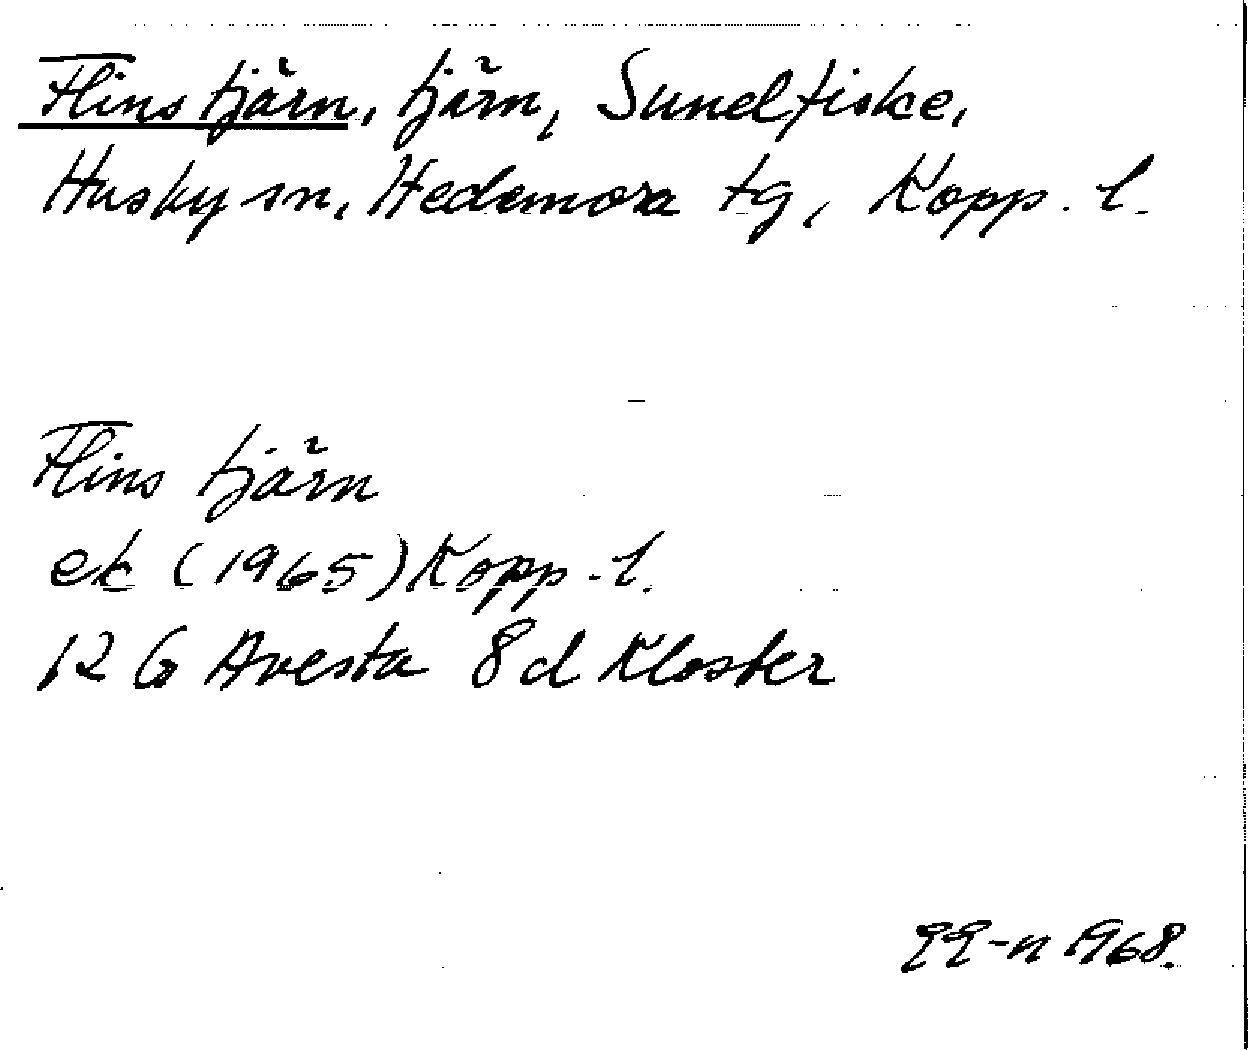 Flins tjärn, tjärn, Sundfiske,
Husby sn, Hedemora tg, Kopp. l.
Flins tjärn
ek (1965) Kopp. l.
12 G Avesta 8d Kloster
1968.